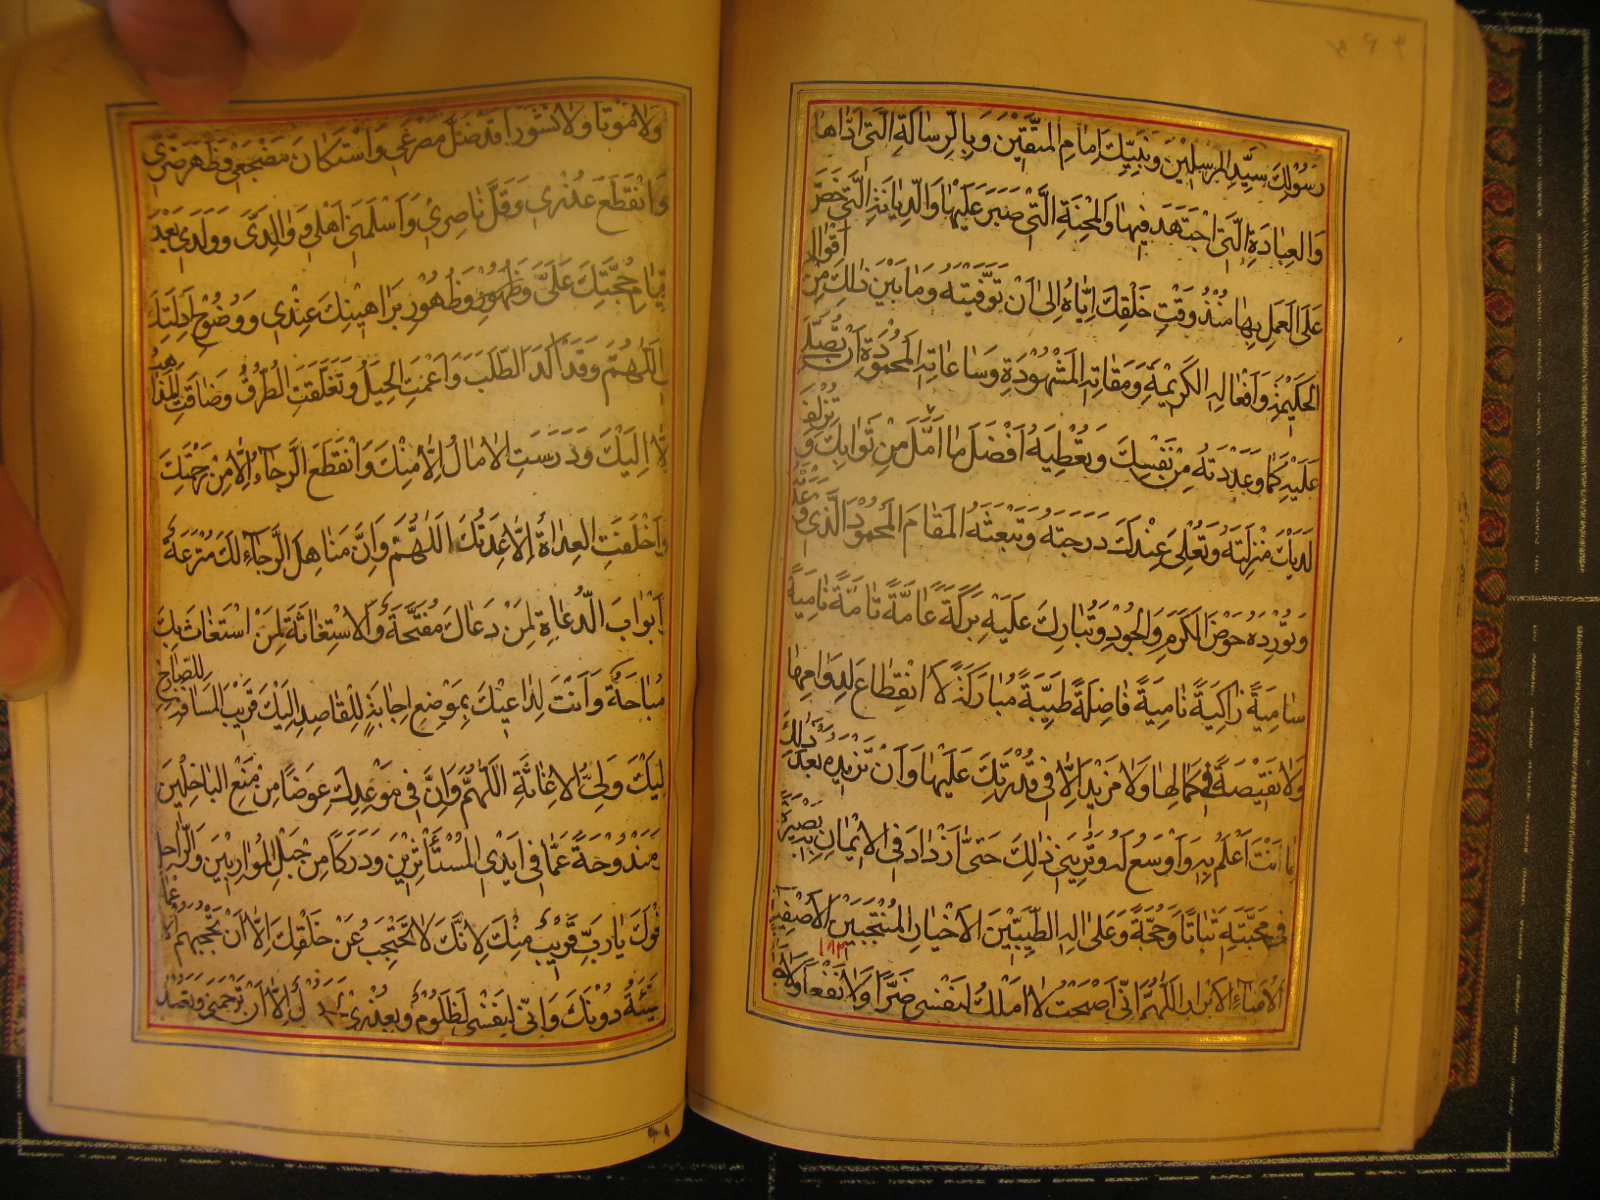 رَسُولِكَ سَيِّدِ الْمُرْسَلِينَ وَنَبِيِّكَ إِمَامِ الْمُتَّقِينَ وَبِالرِّسَالَةِ الَّتِي أَدَّاهَا
وَالْعِبَادَةِ الَّتِي اجْتَهَدَ فِيهَا وَالْمِحْنَةِ الَّتِي صَبَرَ عَلَيْهَا وَالدِّيَانَةِ الَّتِي حَضَّ
عَلَى الْعَمَلِ بِهَا مُنْذُ وَقْتِ خَلْقِكَ إِيَّاهُ إِلَى أَنْ تَوَفَّيْتَهُ وَمَا بَيْنَ ذَلِكَ مِنْ أَقْوَالِهِ
الْحَكِيمَةِ وَأَفْعَالِهِ الْكَرِيمَةِ وَمَقَامَاتِهِ الْمَشْهُودَةِ وَسَاعَاتِهِ الْمَحْمُودَةِ أَنْ تُصَلِّيَ
عَلَيْهِ كَمَا وَعَدْتَهُ مِنْ نَفْسِكَ وَتُعْطِيَهُ أَفْضَلَ مَا أَمَّلَ مِنْ ثَوَابِكَ وَتُزْلِفَ
لَدَيْكَ مَنْزِلَتَهُ وَتُعْلِيَ عِنْدَكَ دَرَجَتَهُ وَتَبْعَثَهُ الْمَقَامَ الْمَحْمُودَ الَّذِي وَعَدْتَهُ
وَتُورِدَهُ حَوْضَ الْكَرَمِ وَالْجُودِ وَتُبَارِكَ عَلَيْهِ بَرَكَةً عَامَّةً تَامَّةً نَامِيَةً
سَامِيَةً زَاكِيَةً نَامِيَةً فَاضِلَةً طَيِّبَةً مُبَارَكَةً لَا انْقِطَاعَ لِدَوَامِهَا
وَلَا نَقِيصَةَ فِي كَمَالِهَا وَلَا مَزِيدَ إِلَّا فِي قُدْرَتِكَ عَلَيْهَا وَأَنْ تَزِيدَهُ بَعْدَ ذَلِكَ
مِمَّا أَنْتَ أَعْلَمُ بِهِ وَأَوْسَعُ لَهُ وَتُرِيَنِي ذَلِكَ حَتَّى أَزْدَادَ فِي الْإِيمَانِ بِهِ بَصِيرَةً
فِي مَحَبَّتِهِ ثَبَاتًا وَحُجَّةً وَعَلَى آلِهِ الطَّيِّبِينَ الْأَخْيَارِ الْمُنْتَجَبِينَ الْأَصْفِيَاءِ
الْأُمَنَاءِ الْأَبْرَارِ اللَّهُمَّ إِنِّي أَصْبَحْتُ لَا أَمْلِكُ لِنَفْسِي ضَرًّا وَلَا نَفْعًا وَلَا
وَلَا مَوْتًا وَلَا نُشُورًا قَدْ ضَلَّ مَصْرَعِي وَاسْتَكَانَ مَضْجَعِي وَظَهَرَ ضُرِّي
وَانْقَطَعَ عُذْرِي وَقَلَّ نَاصِرِي وَأَسْلَمَنِي أَهْلِي وَوَالِدَيَّ وَوَلَدِي بَعْدَ
قِيَامِ حُجَّتِكَ عَلَيَّ وَظُهُورِ وَظُهُورِ بَرَاهِينِكَ عِنْدِي وَوُضُوحِ أَدِلَّتِكَ
اللَّهُمَّ وَقَدْ أَكْدَى الطَّلَبُ وَأَعْيَتِ الْحِيَلُ وَتَغَلَّقَتِ الطُّرُقُ وَضَاقَتِ الْمَذَاهِبُ
إِلَّا إِلَيْكَ وَدَرَسَتِ الْآمَالُ إِلَّا مِنْكَ وَانْقَطَعَ الرَّجَاءُ إِلَّا مِنْ جِهَتِكَ
وَأَخْلَفَتِ الْعِدَاةُ إِلَّا عِدَتُكَ اللَّهُمَّ وَإِنَّ مَنَاهِلَ الرَّجَاءِ لَكَ مُتْرَعَةٌ
أَبْوَابَ الدُّعَاءِ لِمَنْ دَعَاكَ مُفَتَّحَةٌ وَالِاسْتِغَاثَةَ لِمَنِ اسْتَغَاثَ بِكَ
مُبَاحَةٌ وَأَنْتَ لِدَاعِيكَ بِمَوْضِعِ إِجَابَةٍ لِلْقَاصِدِ إِلَيْكَ قَرِيبُ الْمَسَافَةِ لِلصَّارِخِ
إِلَيْكَ وَلِيُّ الْإِغَاثَةِ اللَّهُمَّ وَإِنَّ فِي مَوْعِدِكَ عِوَضًا مِنْ مَنْعِ الْبَاخِلِينَ
مَنْدُوحَةً عَمَّا فِي أَيْدِي الْمُسْتَأْثِرِينَ وَدَرَكًا مِنْ حِيَلِ الْمُوَارِبِينَ وَالرَّاحِلُ
نَحْوَكَ يَا رَبِّ قَرِيبٌ مِنْكَ لِأَنَّكَ لَا تَحْتَجِبُ عَنْ خَلْقِكَ إِلَّا أَنْ تَحْجُبَهُمُ
السَّيِّئَةُ دُونَكَ وَإِنِّي لِنَفْسِي لَظَلُومٌ وَبِعُذْرِي إِلَّا أَنْ تَرْحَمَنِي